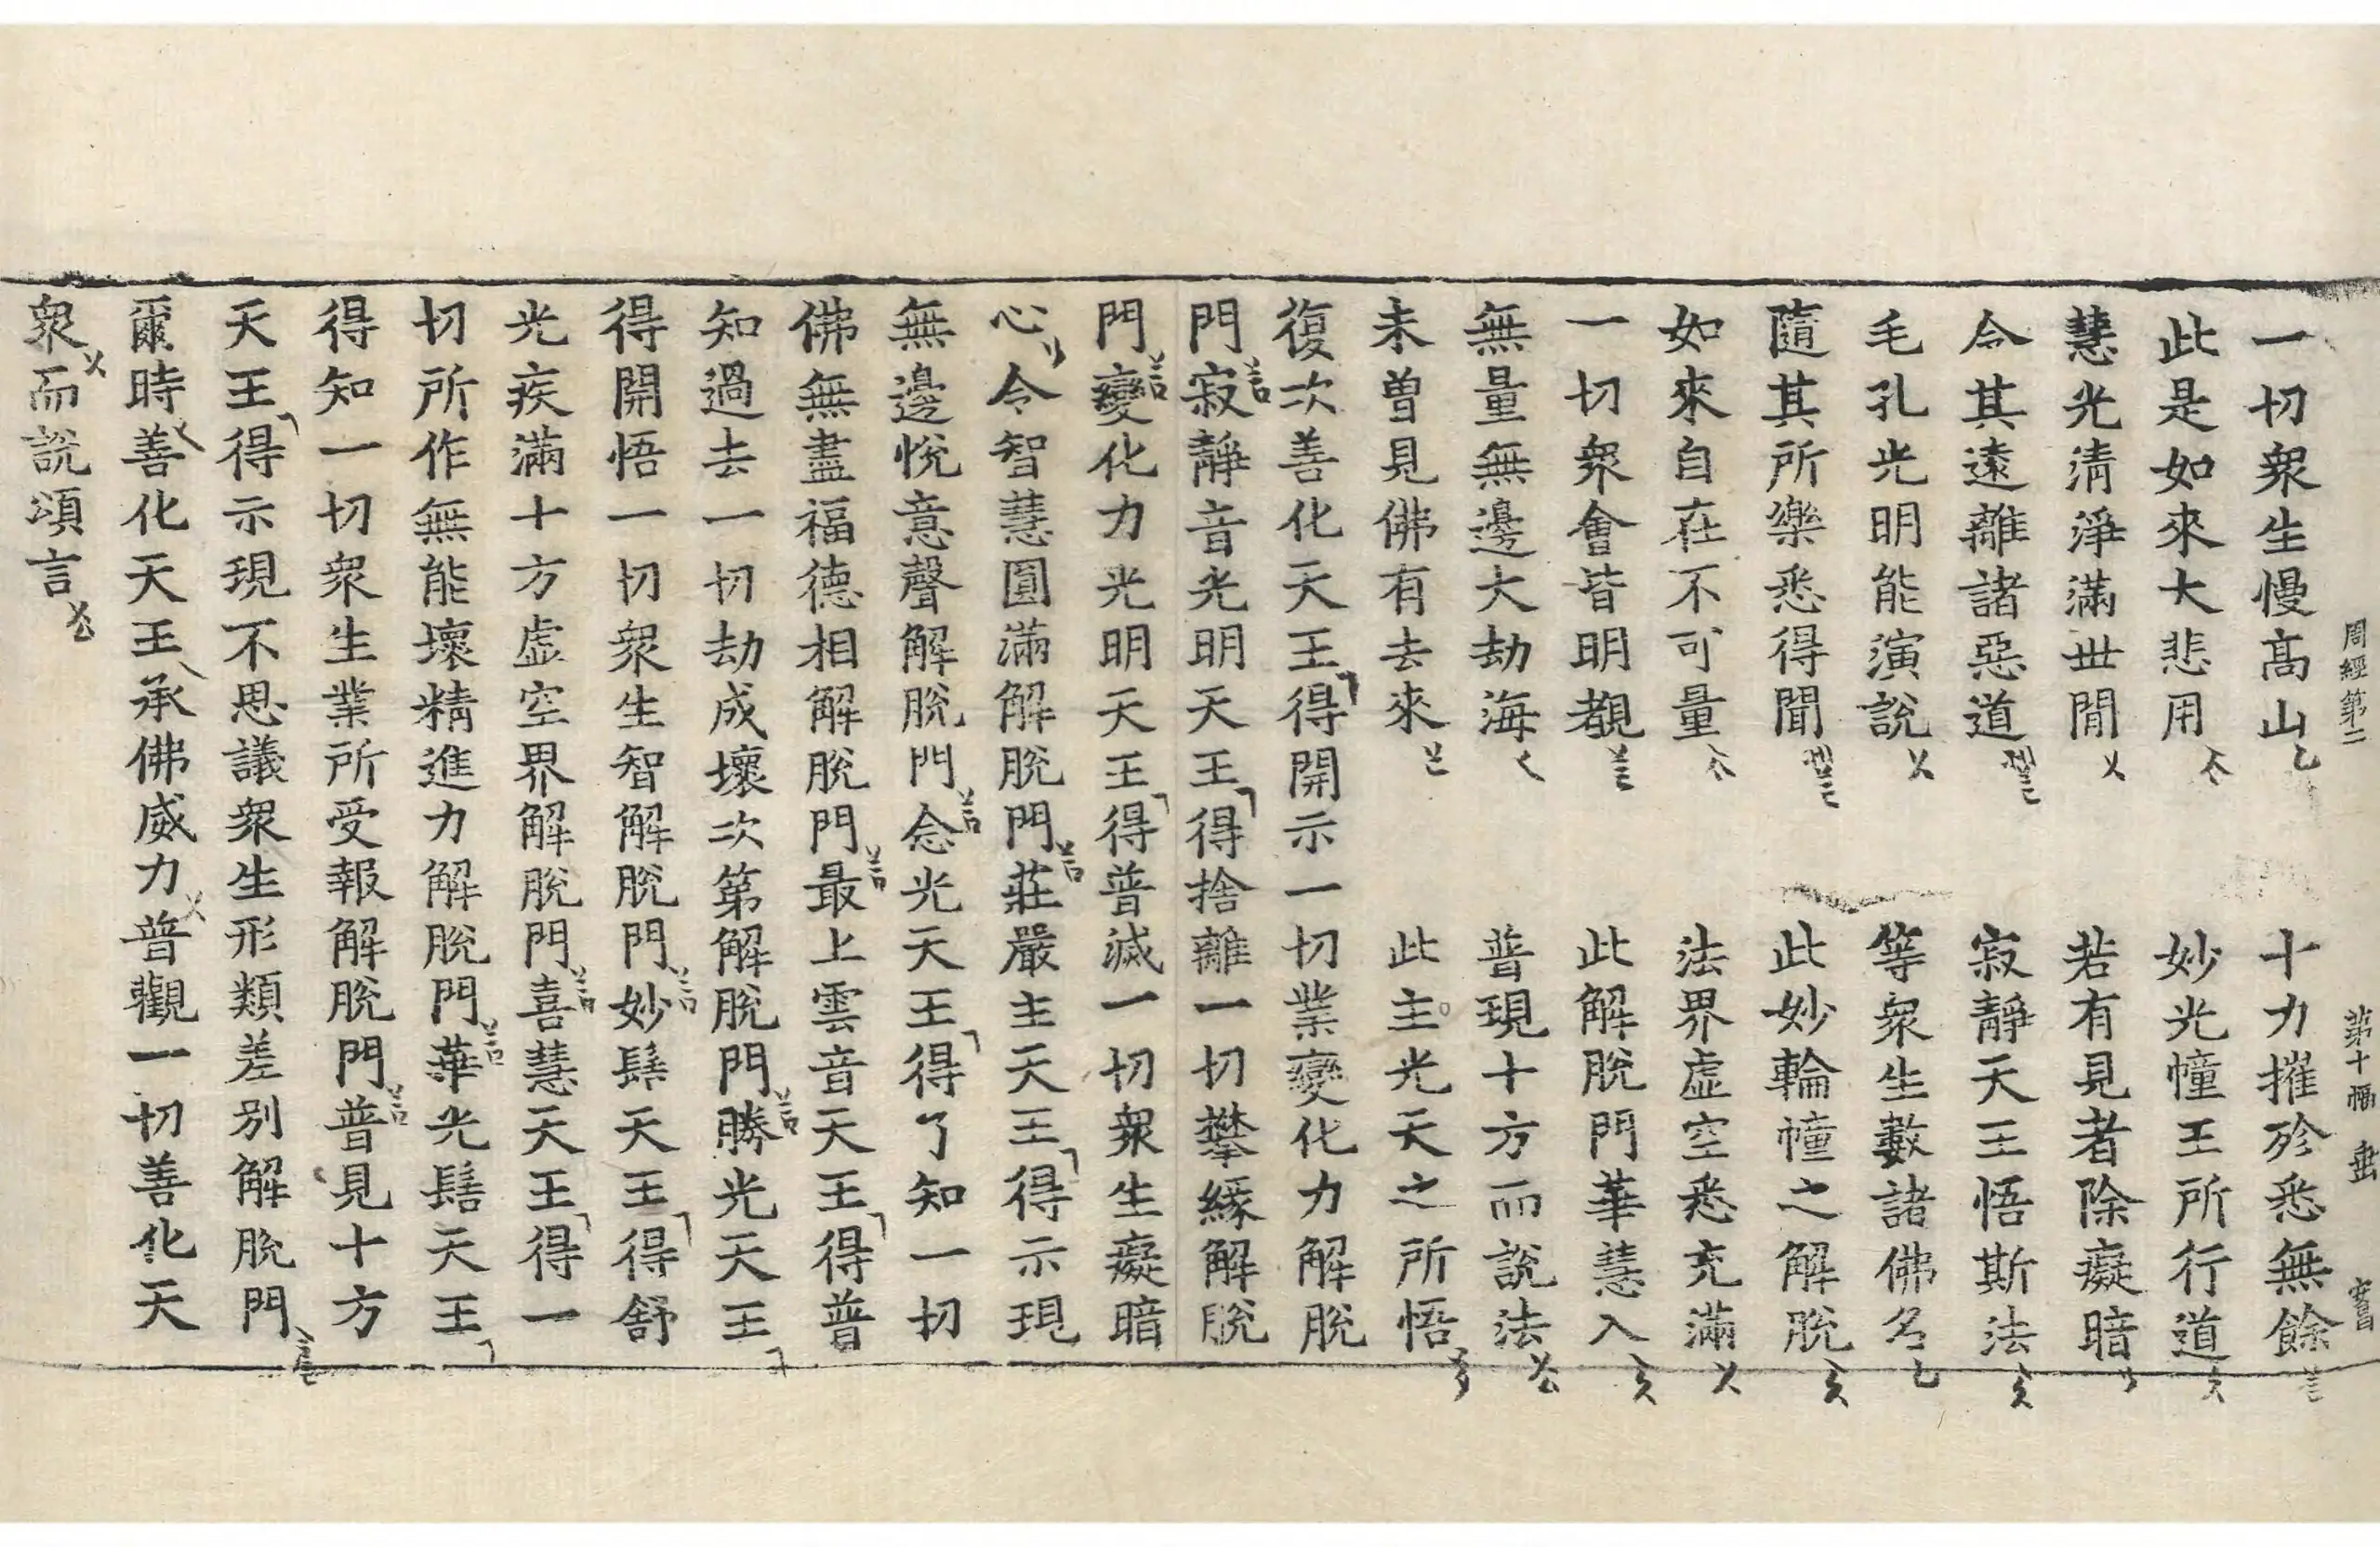 周經第二 第十幅
一切衆生慢髙山 十力摧殄悉無餘
此是如來大悲用 妙光幢王所行道
慧光淸淨滿世閒 若有見者除癡暗
令其遠離諸惡道 寂靜天王悟斯法
毛孔光明能演說 等衆生數諸佛名
隨其所樂悉得聞 此妙輪幢之解脫
如來自在不可量 法界虛空悉充滿
一切衆會皆明覩 此解脫門華慧入
無量無邊大劫海 普現十方而說法
未曽見佛有去來 此主光天之所悟
復次善化天王得開示一切業變化力解脫
門寂靜音光明天王得捨離一切攀緣解脫
門變化力光明天王得普滅一切衆生癡暗
心令智慧圓滿解脫門莊嚴主天王得示現
無邊悅意聲解脫門念光天王得了知一切
佛無盡福德相解脫門最上雲音天王得普
知過去一切劫成壞次第解脫門勝光天王
得開悟一切衆生智解脫門妙髻天王得舒
光疾滿十方虛空界解脫門喜慧天王得一
切所作無能壞精進力解脫門華光髻天王
得知一切衆生業所受報解脫門普見十方
天王得示現不思議衆生形類差別解脫門
爾時善化天王承佛威力普觀一切善化天
衆而說頌言